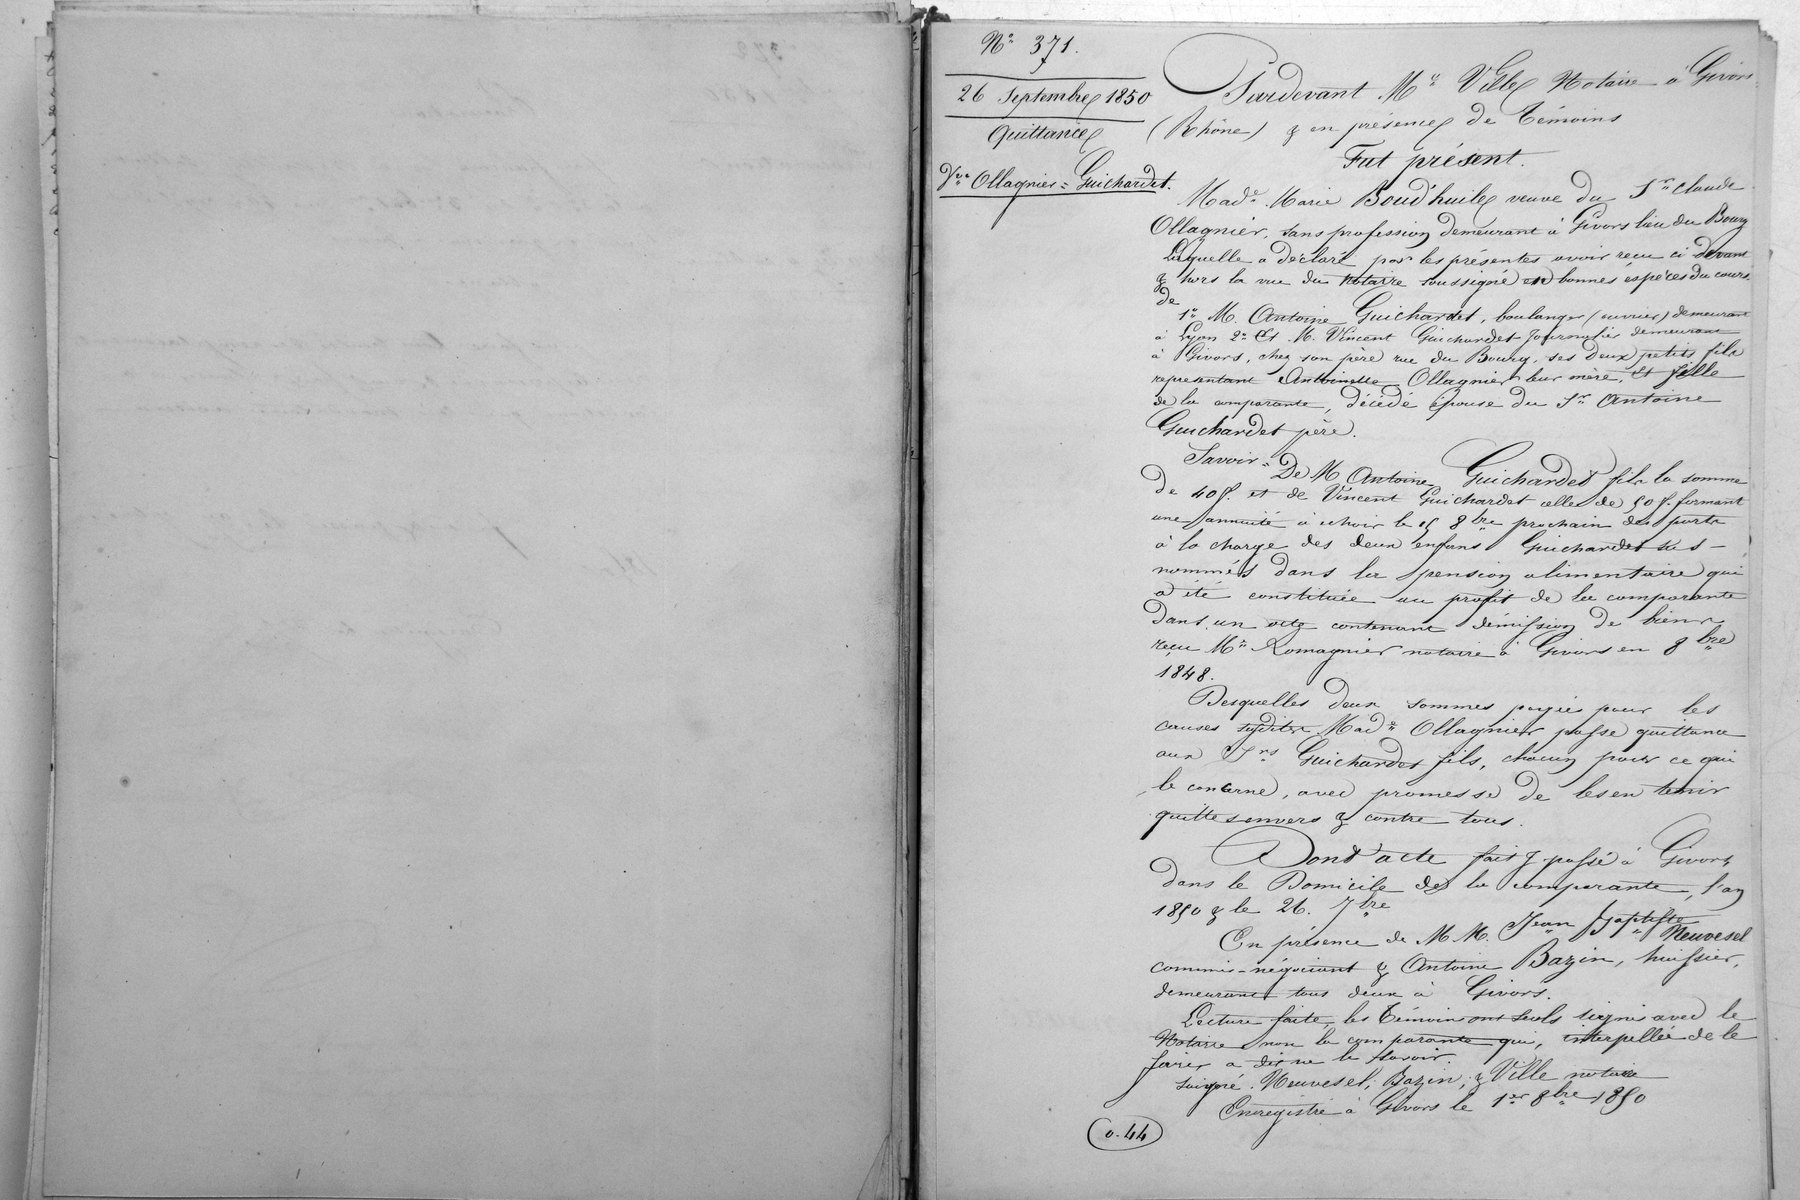 N° 371.
26 Septembre 1850
Quittance
Vve Ollagnier = Guichardet.
Pardevant Me Ville Notaire à Givors
(Rhône) & en présence de Témoins
Fut présent.
Made Marie Boud'huile veuve du Sr Claude
Ollagnier, sans profession demeurant à Givors lieu du Bourg
Laquelle a déclaré par les présentes avoir reçu ci devant
& hors la vue du notaire soussigné en bonnes espèces du cours
de
1° M. Antoine Guichardet, boulanger (ouvrier) demeurant
à Lyon 2° Et M. Vincent Guichardet Journalier demeurant
à Givors, chez son père rue du Bourg, ses deux petits fils
représentant Antoinette Ollagnier leur mère, et fille
de la comparante, décédé épouse du Sr Antoine
Guichardet père.
Savoir = De M Antoine Guichardet fils la somme
de 40 f. et de Vincent Guichardet celle de 50 f. formant
une annuité à échoir le 15 8bre prochain des parts
à la charge des deux enfans Guichardet sus-
nommés dans la pension alimentaire qui
a été constituée au profit de la comparante
dans un acte contenant démission de biens
reçu Me Romagnier notaire à Givors en 8bre
1848.
Desquelles deux sommes payées pour les
causes susdites Made Ollagnier passe quittance
aux Srs Guichardet fils, chacun pour ce qui
le concerne, avec promesse de les en tenir
quittes envers & contre tous.
Dont acte fait & passé à Givors,
dans le Domicile de la comparante, l'an
1850 & le 26. 7bre
En présence de M M. Jean Baptiste Neuvesel
commis-négociant & Antoine Bazin, huissier,
demeurant tous deux à Givors.
Lecture faite, les Témoins ont seuls signé avec le
Notaire non la comparante qui, interpellée de le
faire a dit ne le savoir.
Signé. Neuvesel, Bazin, & Ville notaire
Enregistré à Givors le 1er 8bre 1850
0.44